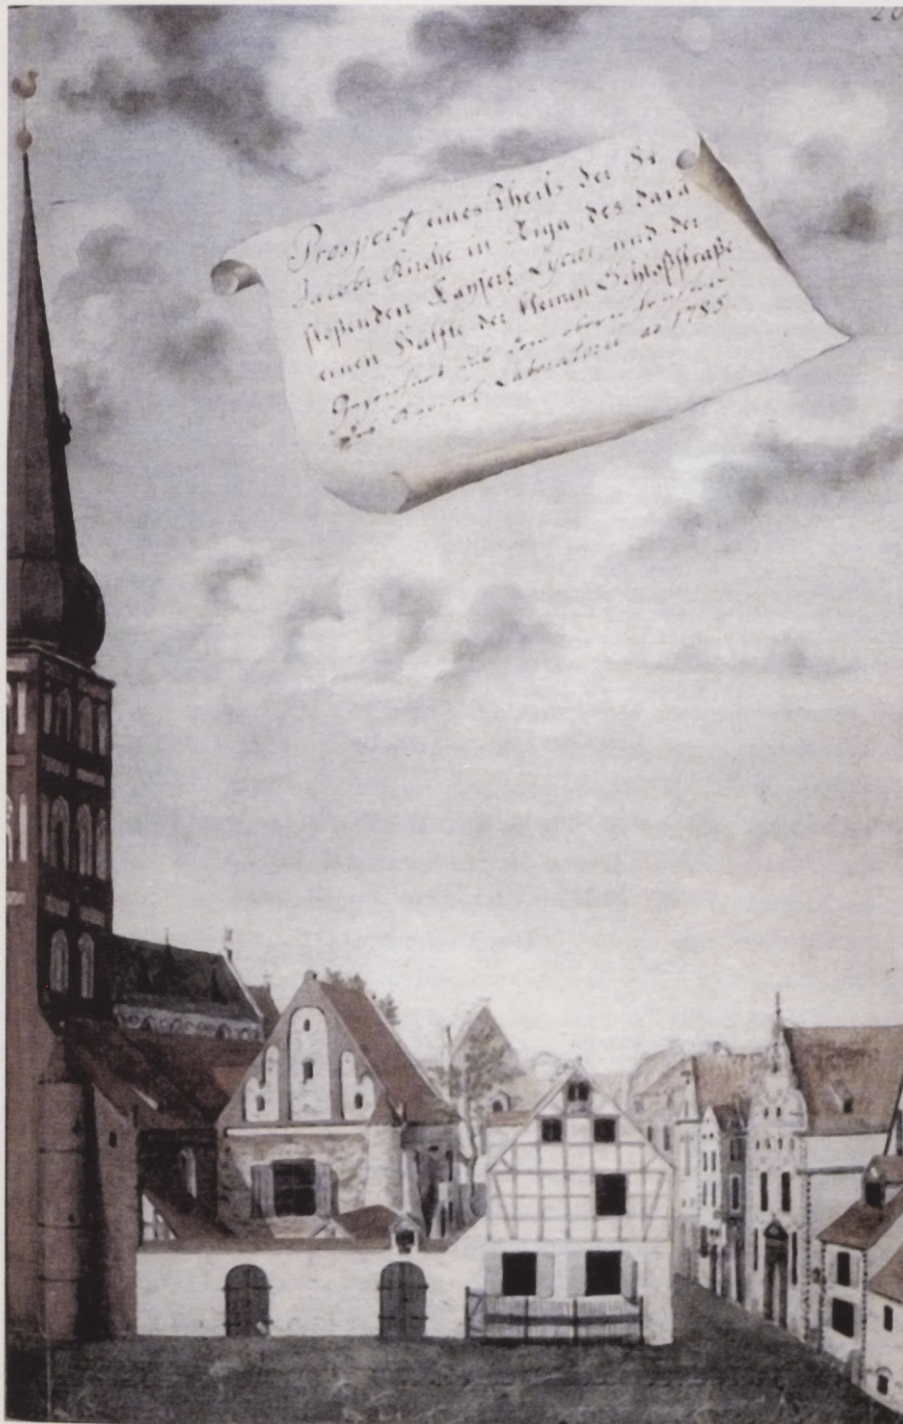 20
Prospect eines Theils der St
Jacobi Kirche in Riga, des dara
stoßenden Kaysers Lycei und der
einen Hälfte der kleinen Schloßstraße
Gezeichnet aus dem obern
des Laboratorii ao 1785.